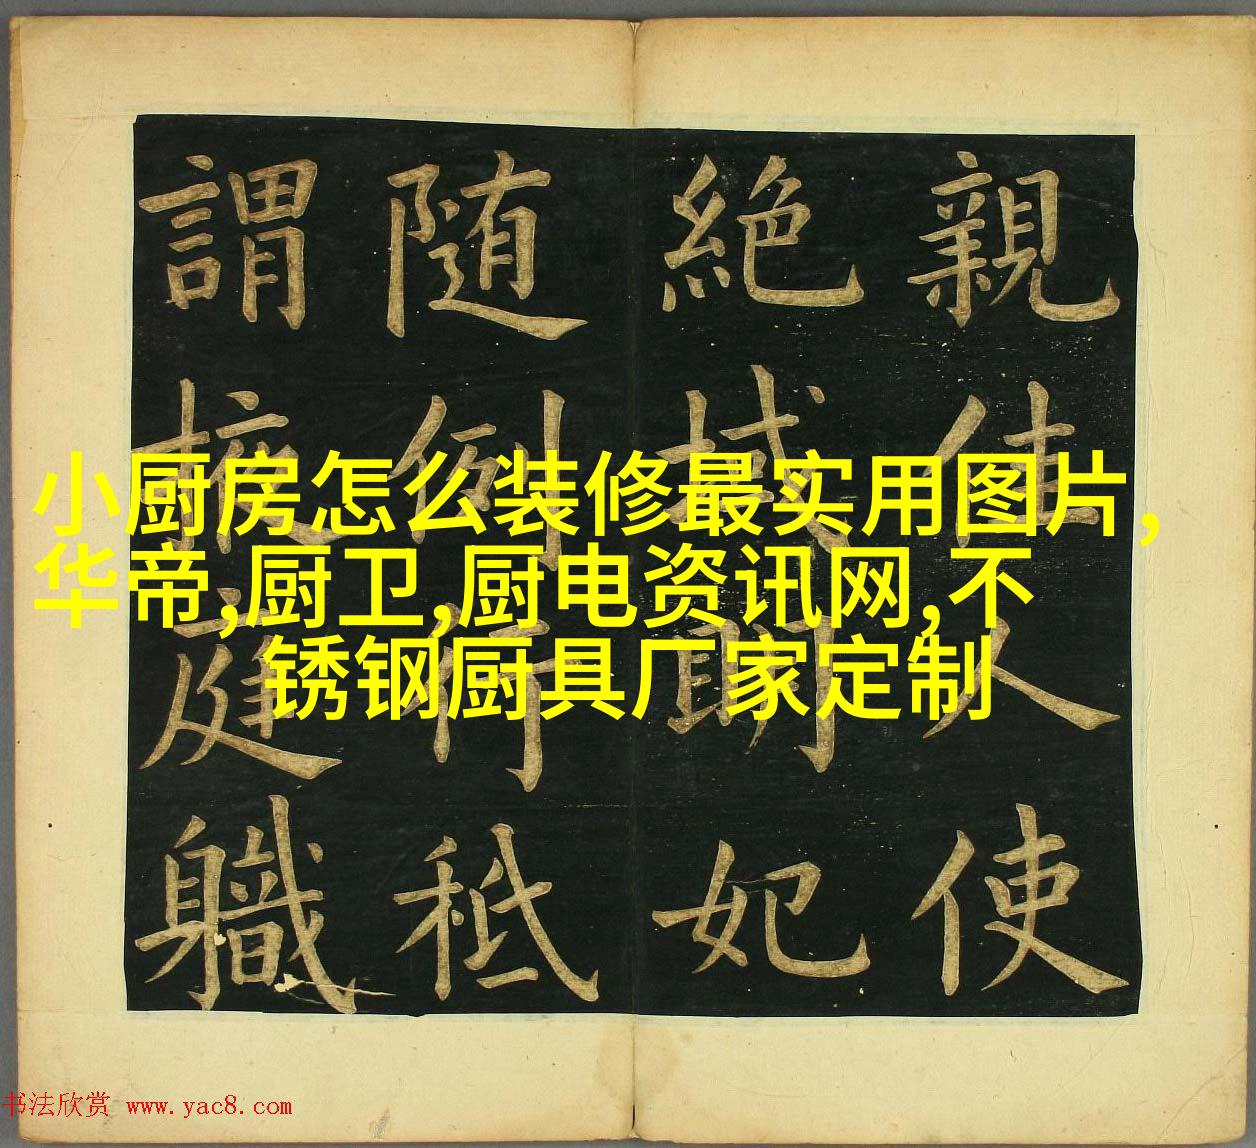 親使人使
絶域眀妃
随例行秪
謂掖庭職
小厨房怎么装修最实用图片,
华帝,厨卫,厨电资讯网,不
锈钢厨具厂家定制
书法欣赏 www.yac8.com